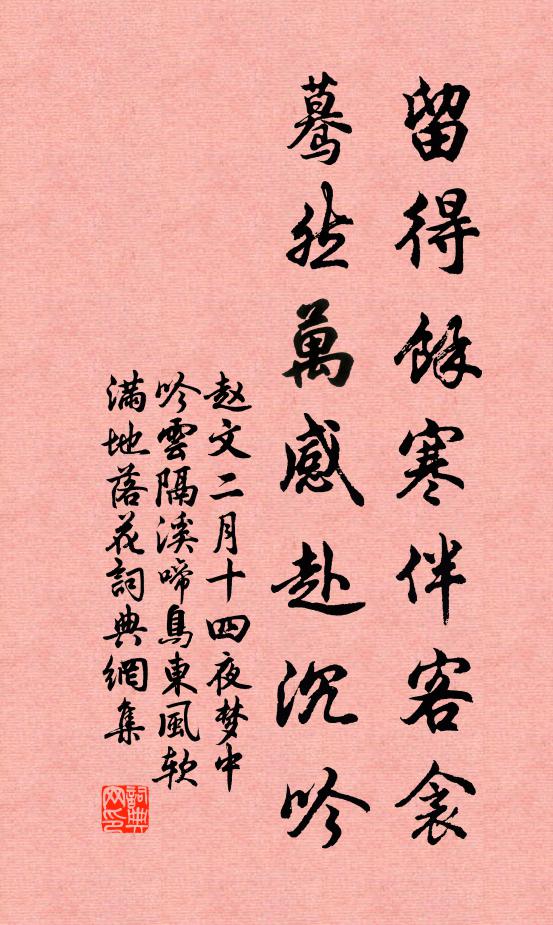 留得餘寒伴客衾
驀然萬感赴沉吟
赵文二月十四夜梦中
吟雲隔溪啼鳥東風軟
满地落花詞典網集
詞典
网印